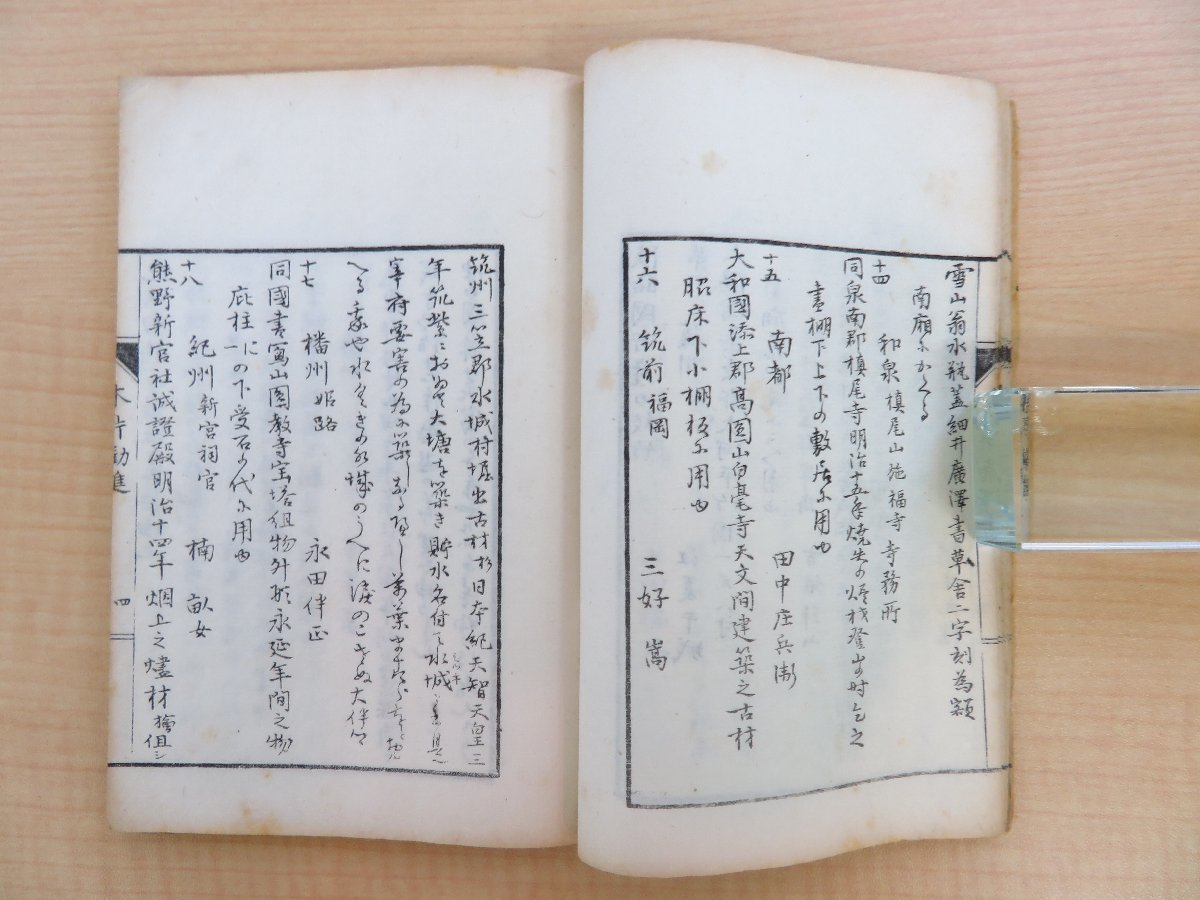 雪山翁水瓶蓋細井廣澤書草舎二字刻為額
南廂ニかくる
十四　和泉槙尾山施福寺寺務所
同泉南郡槙尾寺明治十五年焼失の燼材登山の時乞之
書棚下上下の敷居ニ用ゆ
十五　南都　田中庄兵衞
大和國添上郡高圓山白毫寺天文間建築之古材
昭床下小棚板ニ用ゆ
十六　筑前福岡　三好　嵩
筑州三笠郡水城村堀出古材杉日本紀天智天皇三
年筑紫ニおゐて大塘を築き貯水名付て水城
宰府要害の為に築し
水くきの水城のうへに涙のこはぬ大伴
十七　播州姫路　永田伴正
同國書寫山圓教寺宝塔組物外形永延年間之物
庇柱一の下受石の代ニ用ゆ
十八　紀州新宮祠官　楠　畝女
熊野新宮社誠證殿明治十四年烟上之燼材檜但シ
木片勧進
四